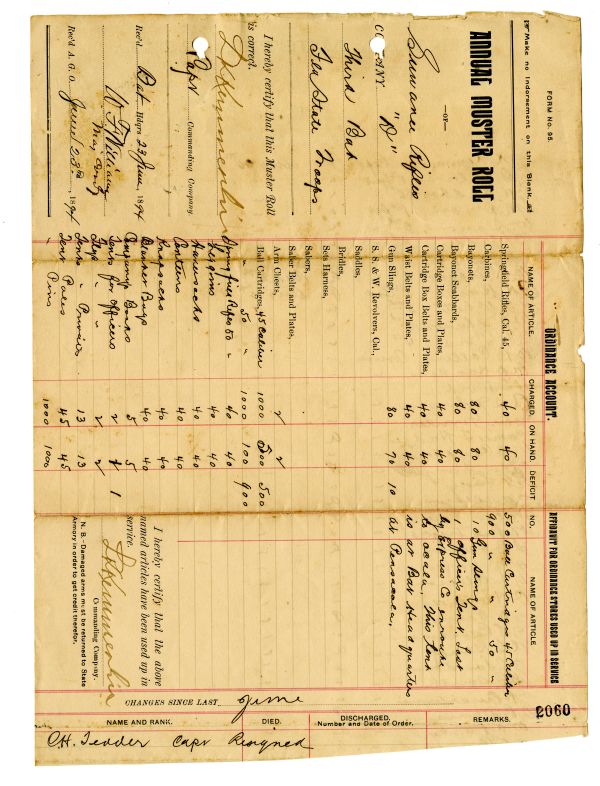 FORM No. 95.
Make no Indorsement on this Blank.
ANNUAL MUSTER ROLL
—OF—
Suwanee Rifles
COMPANY "D"
Third Bat
Fla State Troops
I hereby certify that this Muster Roll
is correct.
Capt Commanding Company.
Rec'd Bat Hdqrs 23 June, 1894
Rec'd A. G. O. June 23rd, 1894
ORDNANCE ACCOUNT.
NAME OF ARTICLE. CHARGED. ON HAND DEFICIT
Springfield Rifles, Cal. 45, 40 40
Carbines,
Bayonets, 80 80
Bayonet Scabbards, 80 80
Cartridge Boxes and Plates, 40 40
Cartridge Box Belts and Plates, 40 40
Waist Belts and Plates, 40 40
Gun Slings, 80 70 10
S. S. & W. Revolvers, Cal.,
Saddles,
Bridles,
Sets Harness,
Sabers,
Saber Belts and Plates,
Arm Chests, 2 2
Ball Cartridges, 45 Caliber 1000 500 500
" 50 " 1000 100 900
Springfield Rifles 50 " 40 40
Leggins 40 40
Haversacks 40 40
Canteens 40 40
Knapsacks 40 40
Blanket Bags 40 40
5 5
Tents for officers 2 1 1
Flys " " 2 2
Tents " Privates 13 13
Tent Poles 45 45
" Pins 1000 1000
AFFIDAVIT FOR ORDNANCE STORES USED UP IN SERVICE
NO. NAME OF ARTICLE
500 Ball Cartridges 45 Caliber
900 " " 50 "
10 Gun Slings
1 officers Tent. Lost
by Express Co enroute
to Ocala. This tent
is at Bat Headquarters
at Pensacola.
I hereby certify that the above
named articles have been used up in
service.
Commanding Company.
N. B.—Damaged arms must be returned to State
Armory in order to get credit therefor.
2060
CHANGES SINCE LAST June
NAME AND RANK. DIED. DISCHARGED. Number and Date of Order. REMARKS.
C.H. Tedder Capt Resigned